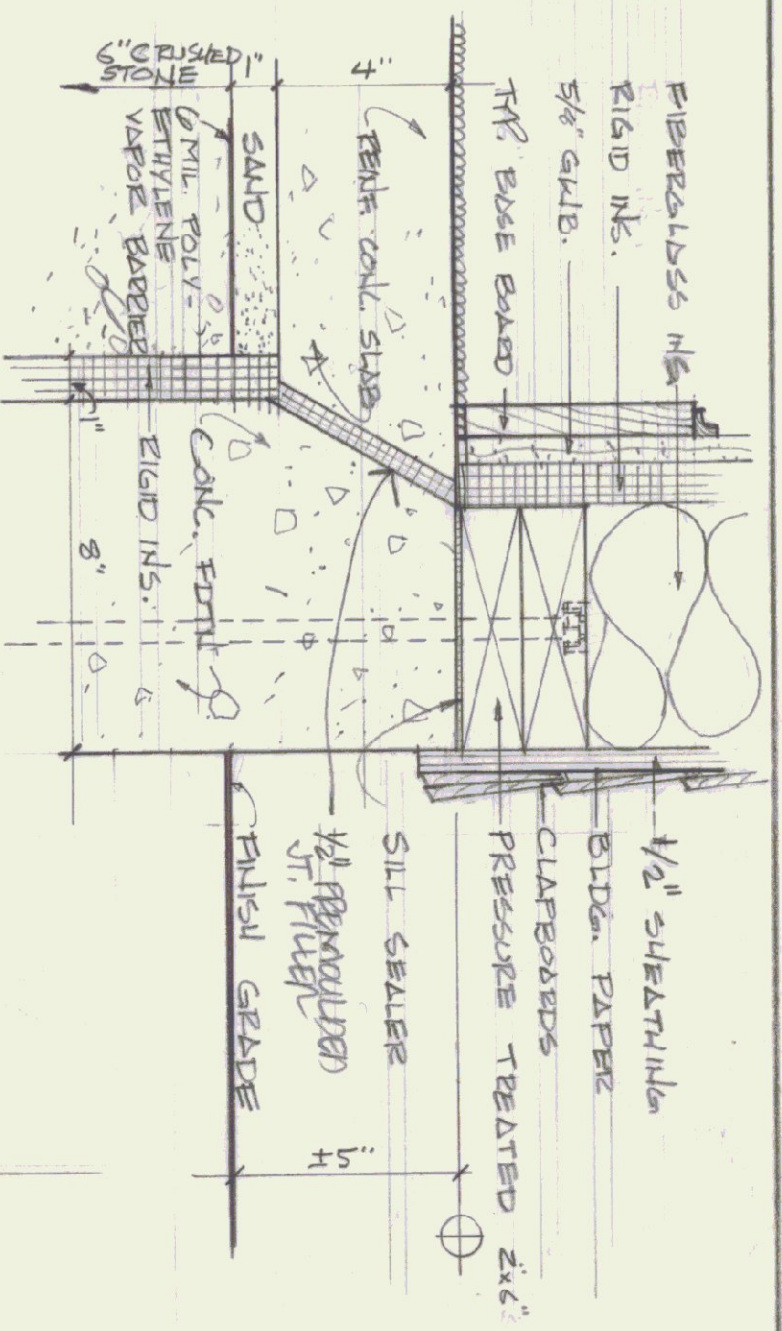 FIBERGLASS INS.
RIGID INS.
5/8" GWB.
TYP. BASE BOARD
REINF. CONC. SLAB
4"
1"
SAND
6" CRUSHED
STONE
6 MIL POLY-
ETHYLENE
VAPOR BARRIER
1"
RIGID INS.
CONC. FDTN
8"
1/2" SHEATHING
BLDG. PAPER
CLAPBOARDS
PRESSURE TREATED 2"x6"
SILL SEALER
1/2" PREMOULDED
JT. FILLER
FINISH GRADE
±5"